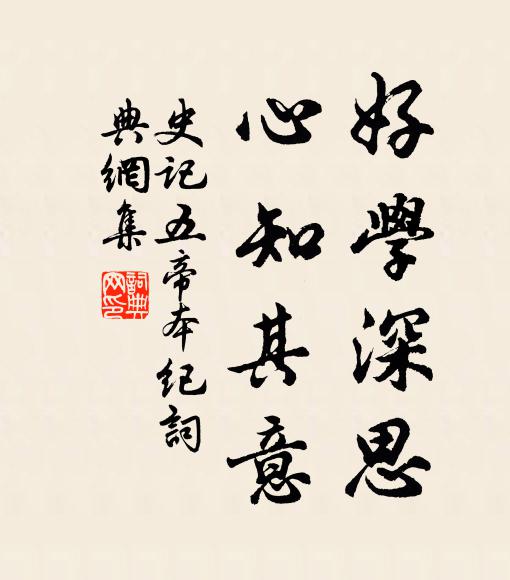 好學深思
心知其意
史記五帝本紀詞
典網集
詞典
网印